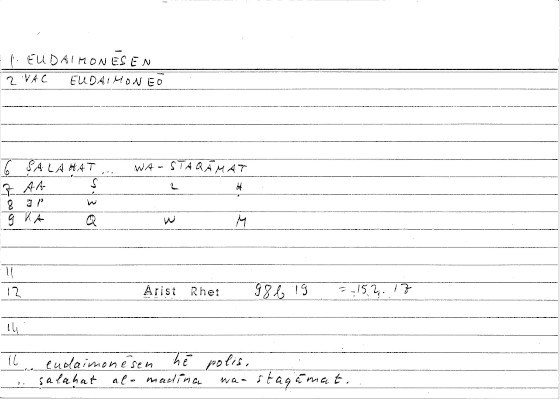 1. EUDAIMONĒSEN
2 VAC EUDAIMONEŌ
6 ṢALAḤAT... WA-STAQĀMAT
7 AA Ṣ L Ḥ
8 JP W
9 KA Q W M
11
12 Arist Rhet 98b 19 = 152. 17
14
16 .. eudaimonēsen hē polis.
.. ṣalaḥat al-madīna wa-staqāmat.